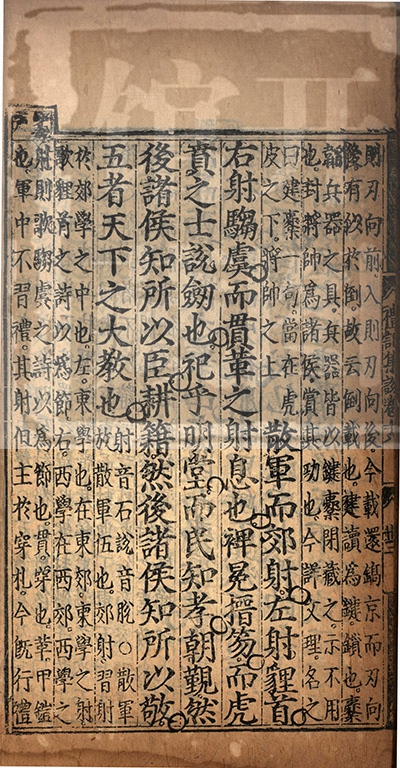 則刃向前入則刃向後。今載還鎬京而刃向
後。有似於倒。故云倒載也。建讀為鍵。鎖也。櫜
韜兵器之具。兵器皆以鍵櫜閉藏之。示不用
也。封將帥為諸侯。賞其功也。今詳文理。名之
曰建櫜一句。當在虎
皮之下。將帥之上
散軍而郊射。左射貍首
右射騶虞。而貫革之射息也。裨冕搢笏。而虎
賁之士說劒也。祀乎明堂。而民知孝。朝覲。然
後諸侯知所以臣。耕籍。然後諸侯知所以敬。
五者天下之大教也。
射音石說音脫○散軍
放散軍伍也。郊射習射
於郊學之中也。左東學也。在東郊。東學之射
歌貍首之詩以為節。右。西學。在西郊。西學之
射。則歌騶虞之詩以為節也。貫穿也。革甲鎧
也。軍中不習禮。其射但主於穿札。今既行禮
禮記集說卷